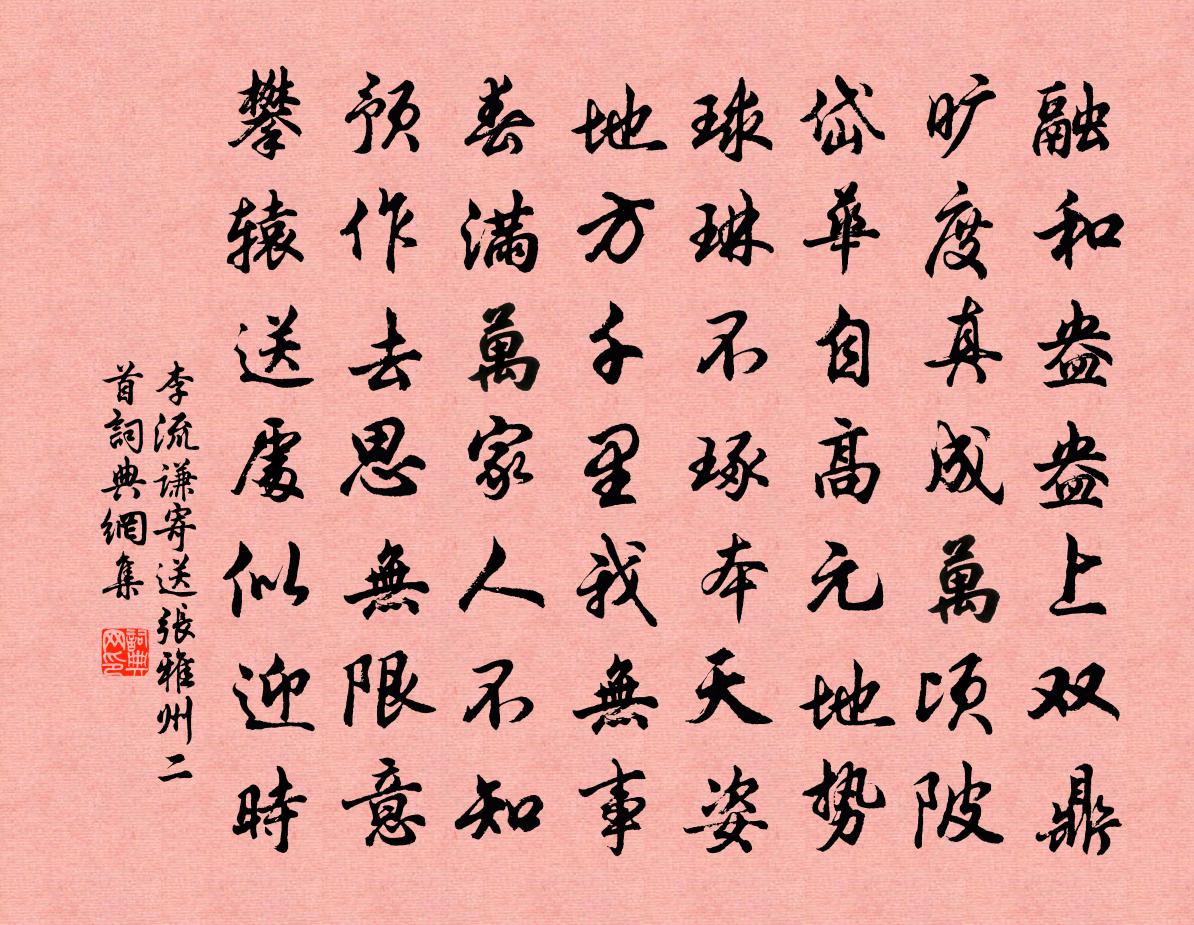 融和盎盎上双鼎
旷度真成萬顷陂
岱華自高元地势
球琳不琢本天姿
地方千里我無事
春滿萬家人不知
预作去思無限意
攀辕送處似迎時
李流谦寄送張雅州二
首詞典網集
詞典
网印